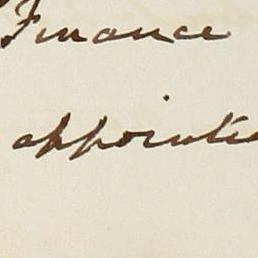 Finance
appointe